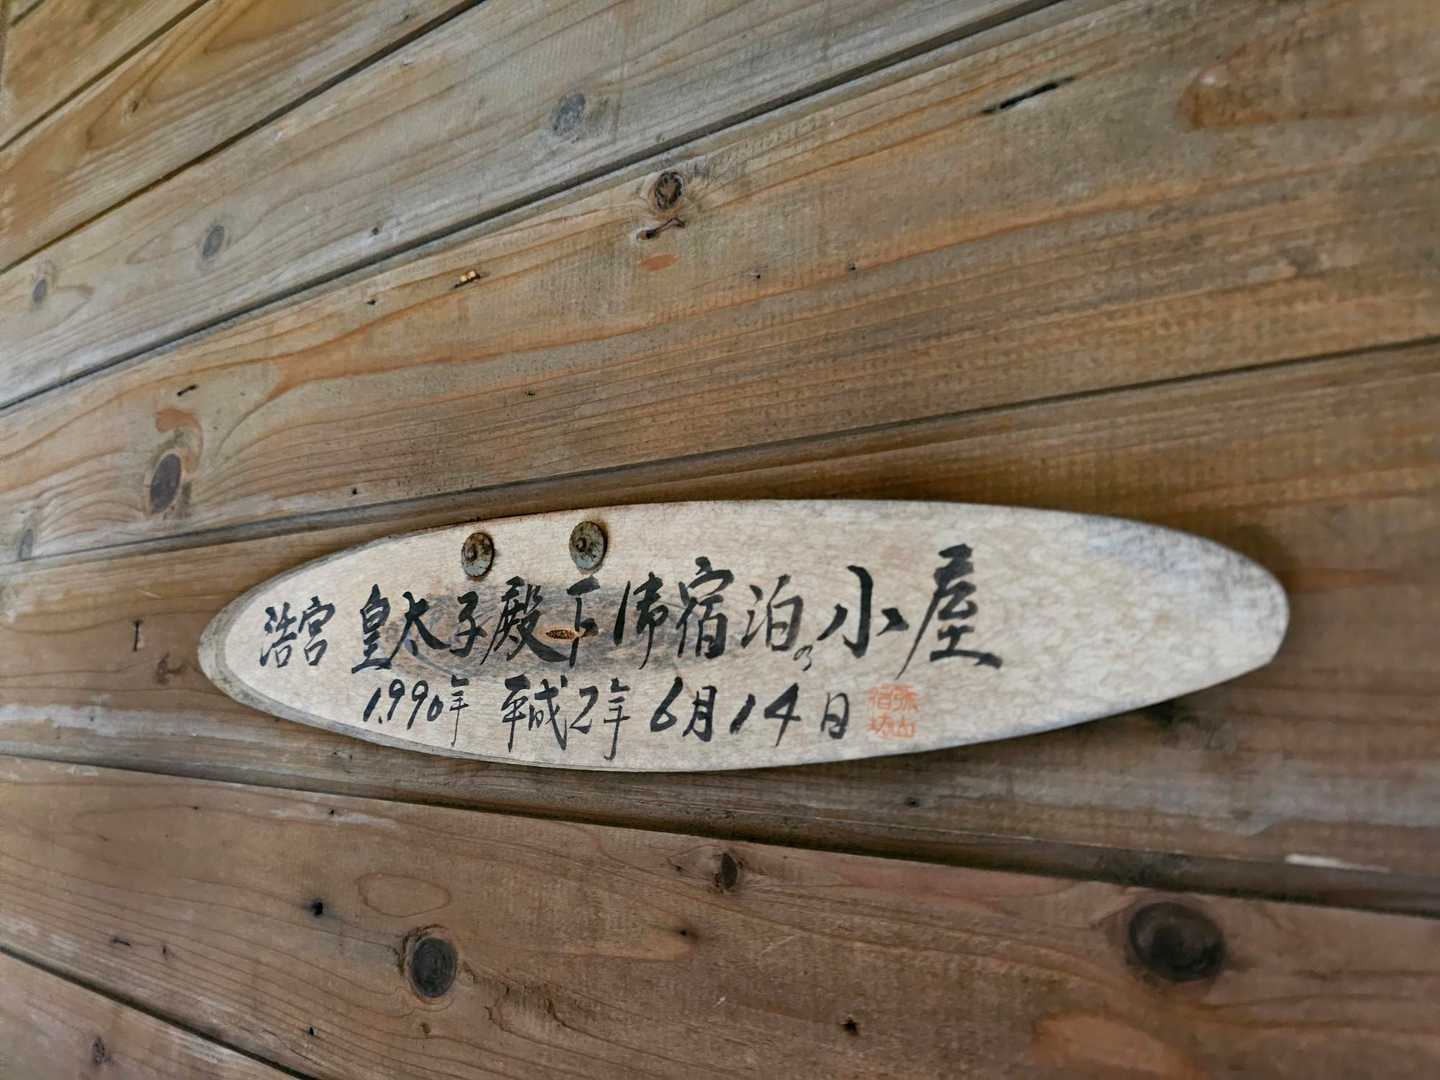 浩宮 皇太子殿下御宿泊の小屋
1990年 平成2年 6月14日
弥山
宿坊